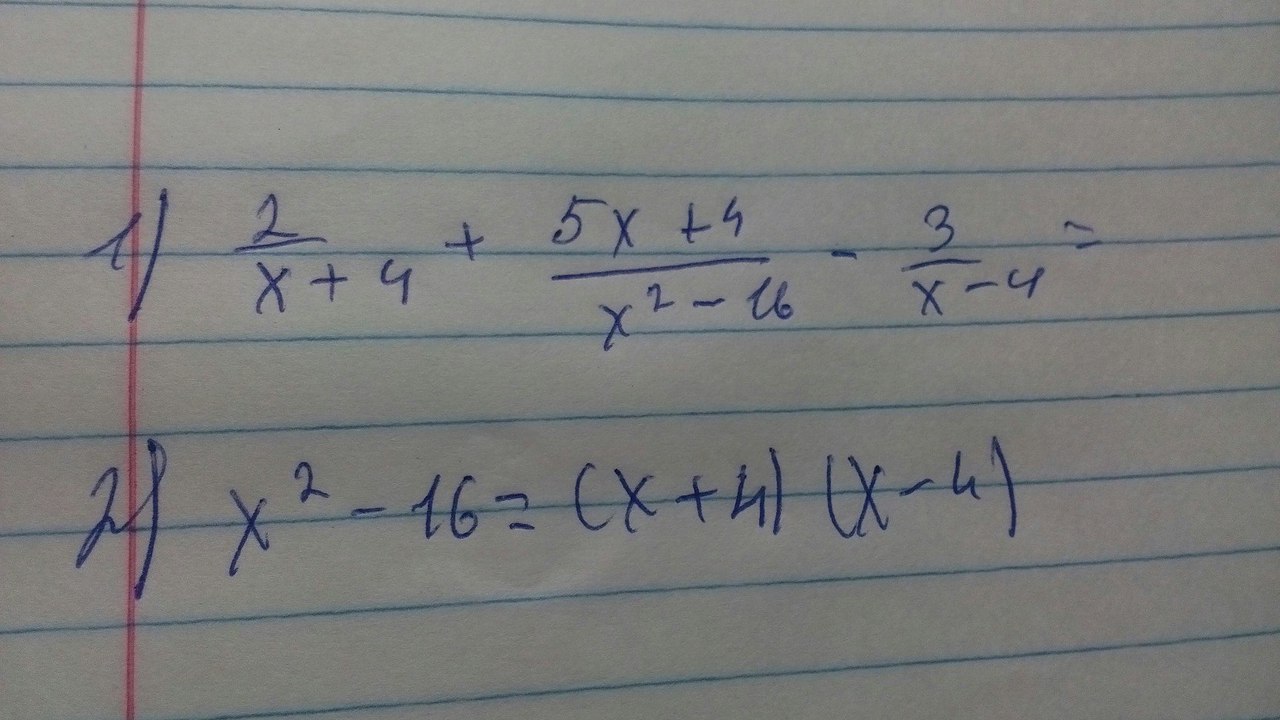 1) 2/(x+4) + (5x+4)/(x²-16) - 3/(x-4) =
2) x² - 16 = (x+4) (x-4)